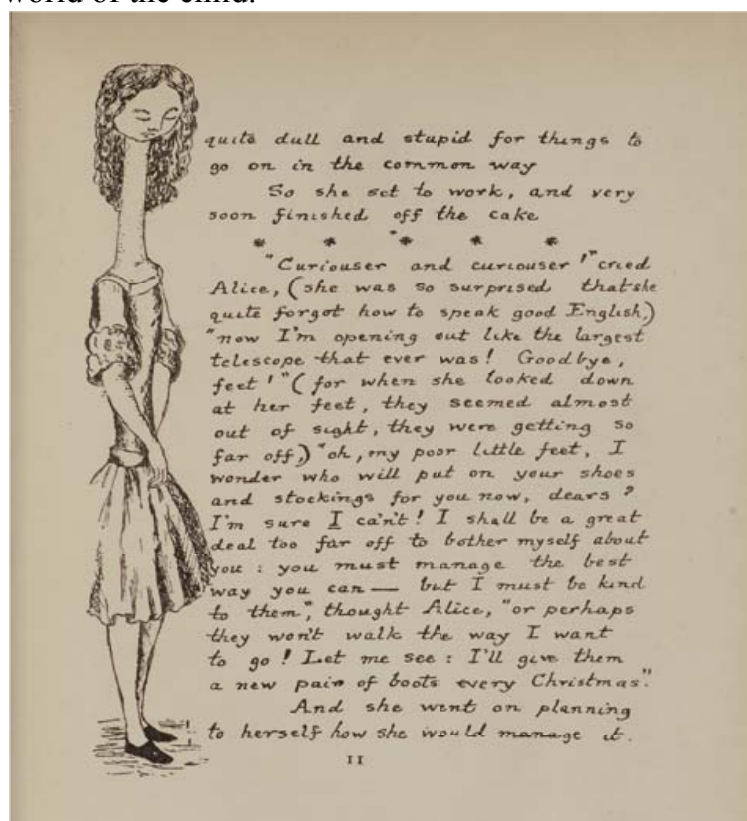 world of the child.
quite dull and stupid for things to
go on in the common way
So she set to work, and very
soon finished off the cake
* * * * *
"Curiouser and curiouser!" cried
Alice, (she was so surprised that she
quite forgot how to speak good English,)
"now I'm opening out like the largest
telescope that ever was! Goodbye,
feet!" (for when she looked down
at her feet, they seemed almost
out of sight, they were getting so
far off,) "oh, my poor little feet, I
wonder who will put on your shoes
and stockings for you now, dears?
I'm sure I can't! I shall be a great
deal too far off to bother myself about
you: you must manage the best
way you can — but I must be kind
to them", thought Alice, "or perhaps
they won't walk the way I want
to go! Let me see: I'll give them
a new pair of boots every Christmas."
And she went on planning
to herself how she would manage it.
11